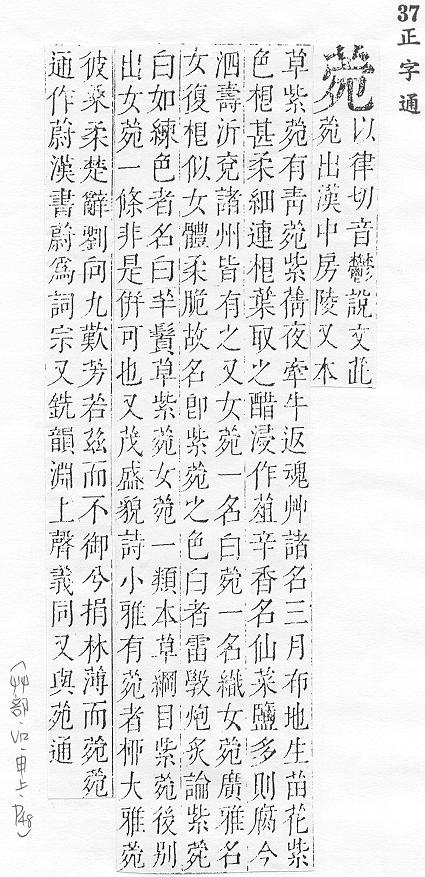 37正字通
菀
以律切音鬱說文茈
菀出漢中房陵又本
草紫菀有青菀紫蒨夜牽牛返魂艸諸名三月布地生苗花紫
色相甚柔細連相葉取之醋浸作葅辛香名仙菜鹽多則腐今
泗壽沂兗諸州皆有之又女菀一名白菀一名織女菀廣雅名
女復相似女體柔脆故名卽紫菀之色白者雷斆炮炙論紫菀
白如練色者名白羊鬚草紫菀女菀一類本草綱目紫菀後別
出女菀一條非是倂可也又茂盛貌詩小雅有菀者柳大雅菀
彼桑柔楚辭劉向九歎芳若茲而不御兮捐林薄而菀菀
通作蔚漢書蔚爲詞宗又銑韻淵上聲義同又與苑通
(艸部